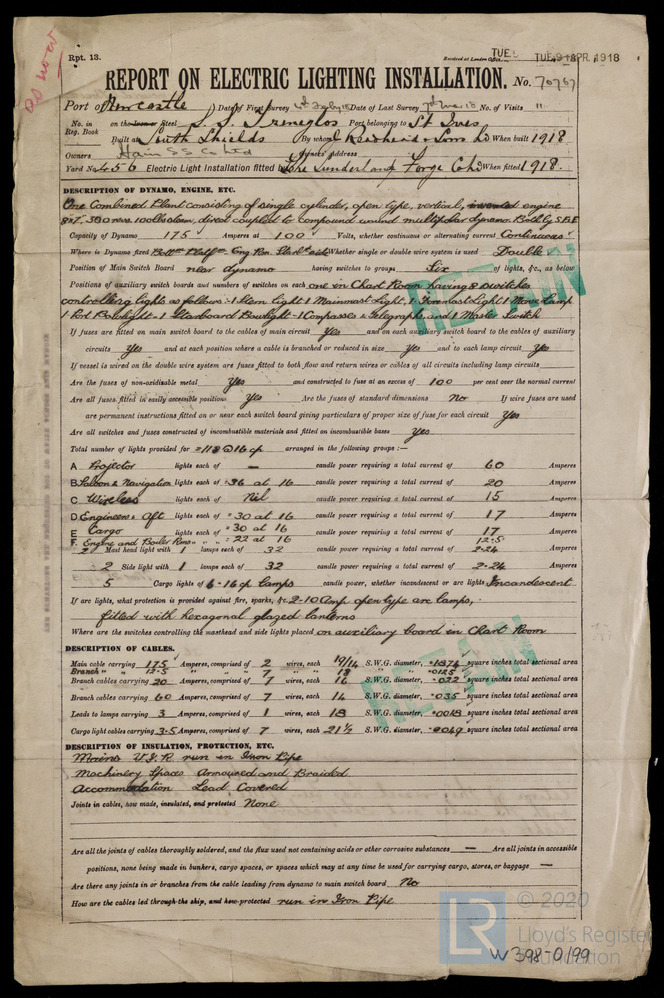 Rpt. 13.
Received at London Office
TUE. 9 APR. 1918
REPORT ON ELECTRIC LIGHTING INSTALLATION. No. 70767
Port of Newcastle Date of First Survey Date of Last Survey No. of Visits 11
No. in Reg. Book on the Iron or Steel S.S. Treneglos Port belonging to St Ives
Built at South Shields By whom J. Readhead & Sons Ld When built 1918
Owners Hain SS Co Ltd Owners' Address
Yard No. 456 Electric Light Installation fitted by The Sunderland Forge Co Ld When fitted 1918.
DESCRIPTION OF DYNAMO, ENGINE, ETC.
One Combined Plant consisting of single cylinder, open type, vertical, inverted engine
8x7. 380 revs. 100lbs steam, direct coupled to compound wound multipolar dynamo. Both by S.F.E
Capacity of Dynamo 175 Amperes at 100 Volts, whether continuous or alternating current Continuous
Where is Dynamo fixed Bottm Platfm Eng Rm Starbd side Whether single or double wire system is used Double
Position of Main Switch Board near dynamo having switches to groups Six of lights, &c., as below
Positions of auxiliary switch boards and numbers of switches on each one in Chart Room having 8 switches
controlling lights as follows:- 1 Stern light 1 Mainmast Light, 1 Foremast Light 1 Morse Lamp
1 Port Bowlight - 1 Starboard Bowlight - 1 Compasses & Telegraphs, and 1 Master Switch
If fuses are fitted on main switch board to the cables of main circuit Yes and on each auxiliary switch board to the cables of auxiliary
circuits Yes and at each position where a cable is branched or reduced in size Yes and to each lamp circuit Yes
If vessel is wired on the double wire system are fuses fitted to both flow and return wires or cables of all circuits including lamp circuits
Are the fuses of non-oxidizable metal Yes and constructed to fuse at an excess of 100 per cent over the normal current
Are all fuses fitted in easily accessible positions Yes Are the fuses of standard dimensions No If wire fuses are used
are permanent instructions fitted on or near each switch board giving particulars of proper size of fuse for each circuit Yes
Are all switches and fuses constructed of incombustible materials and fitted on incombustible bases Yes
Total number of lights provided for =118 @ 16 cp arranged in the following groups :—
A Projector lights each of — candle power requiring a total current of 60 Amperes
B Saloon & Navigation lights each of =36 at 16 candle power requiring a total current of 20 Amperes
C Wireless lights each of Nil candle power requiring a total current of 15 Amperes
D Engineers & Aft lights each of =30 at 16 candle power requiring a total current of 17 Amperes
E Cargo lights each of =30 at 16 candle power requiring a total current of 17 Amperes
F. Engine and Boiler Rms " " =22 at 16 12.5
2 Mast head light with 1 lamps each of 32 candle power requiring a total current of 2.24 Amperes
2 Side light with 1 lamps each of 32 candle power requiring a total current of 2.24 Amperes
5 Cargo lights of 6 - 16 cp lamps candle power, whether incandescent or arc lights Incandescent
If arc lights, what protection is provided against fire, sparks, &c. 2 - 10 Amp open type arc lamps,
fitted with hexagonal glazed lanterns
Where are the switches controlling the masthead and side lights placed on auxiliary board in Chart Room
DESCRIPTION OF CABLES.
Main cable carrying 175 Amperes, comprised of 2 wires, each 19/14 S.W.G. diameter, .1874 square inches total sectional area
Branch " " 12.5 " " " 7 " " 18 " " .0125
Branch cables carrying 20 Amperes, comprised of 7 wires, each 16 S.W.G. diameter, .022 square inches total sectional area
Branch cables carrying 60 Amperes, comprised of 7 wires, each 14 S.W.G. diameter, .035 square inches total sectional area
Leads to lamps carrying 3 Amperes, comprised of 1 wires, each 18 S.W.G. diameter, .0018 square inches total sectional area
Cargo light cables carrying 3.5 Amperes, comprised of 7 wires, each 21½ S.W.G. diameter, .0049 square inches total sectional area
DESCRIPTION OF INSULATION, PROTECTION, ETC.
Mains V.I.R run in Iron Pipe
Machinery Spaces Armoured and Braided
Accommodation Lead Covered
Joints in cables, how made, insulated, and protected None
Are all the joints of cables thoroughly soldered, and the flux used not containing acids or other corrosive substances — Are all joints in accessible
positions, none being made in bunkers, cargo spaces, or spaces which may at any time be used for carrying cargo, stores, or baggage —
Are there any joints in or branches from the cable leading from dynamo to main switch board No
How are the cables led through the ship, and how protected run in Iron Pipe
LR © 2020
Lloyd's Register
Foundation
W398-0199